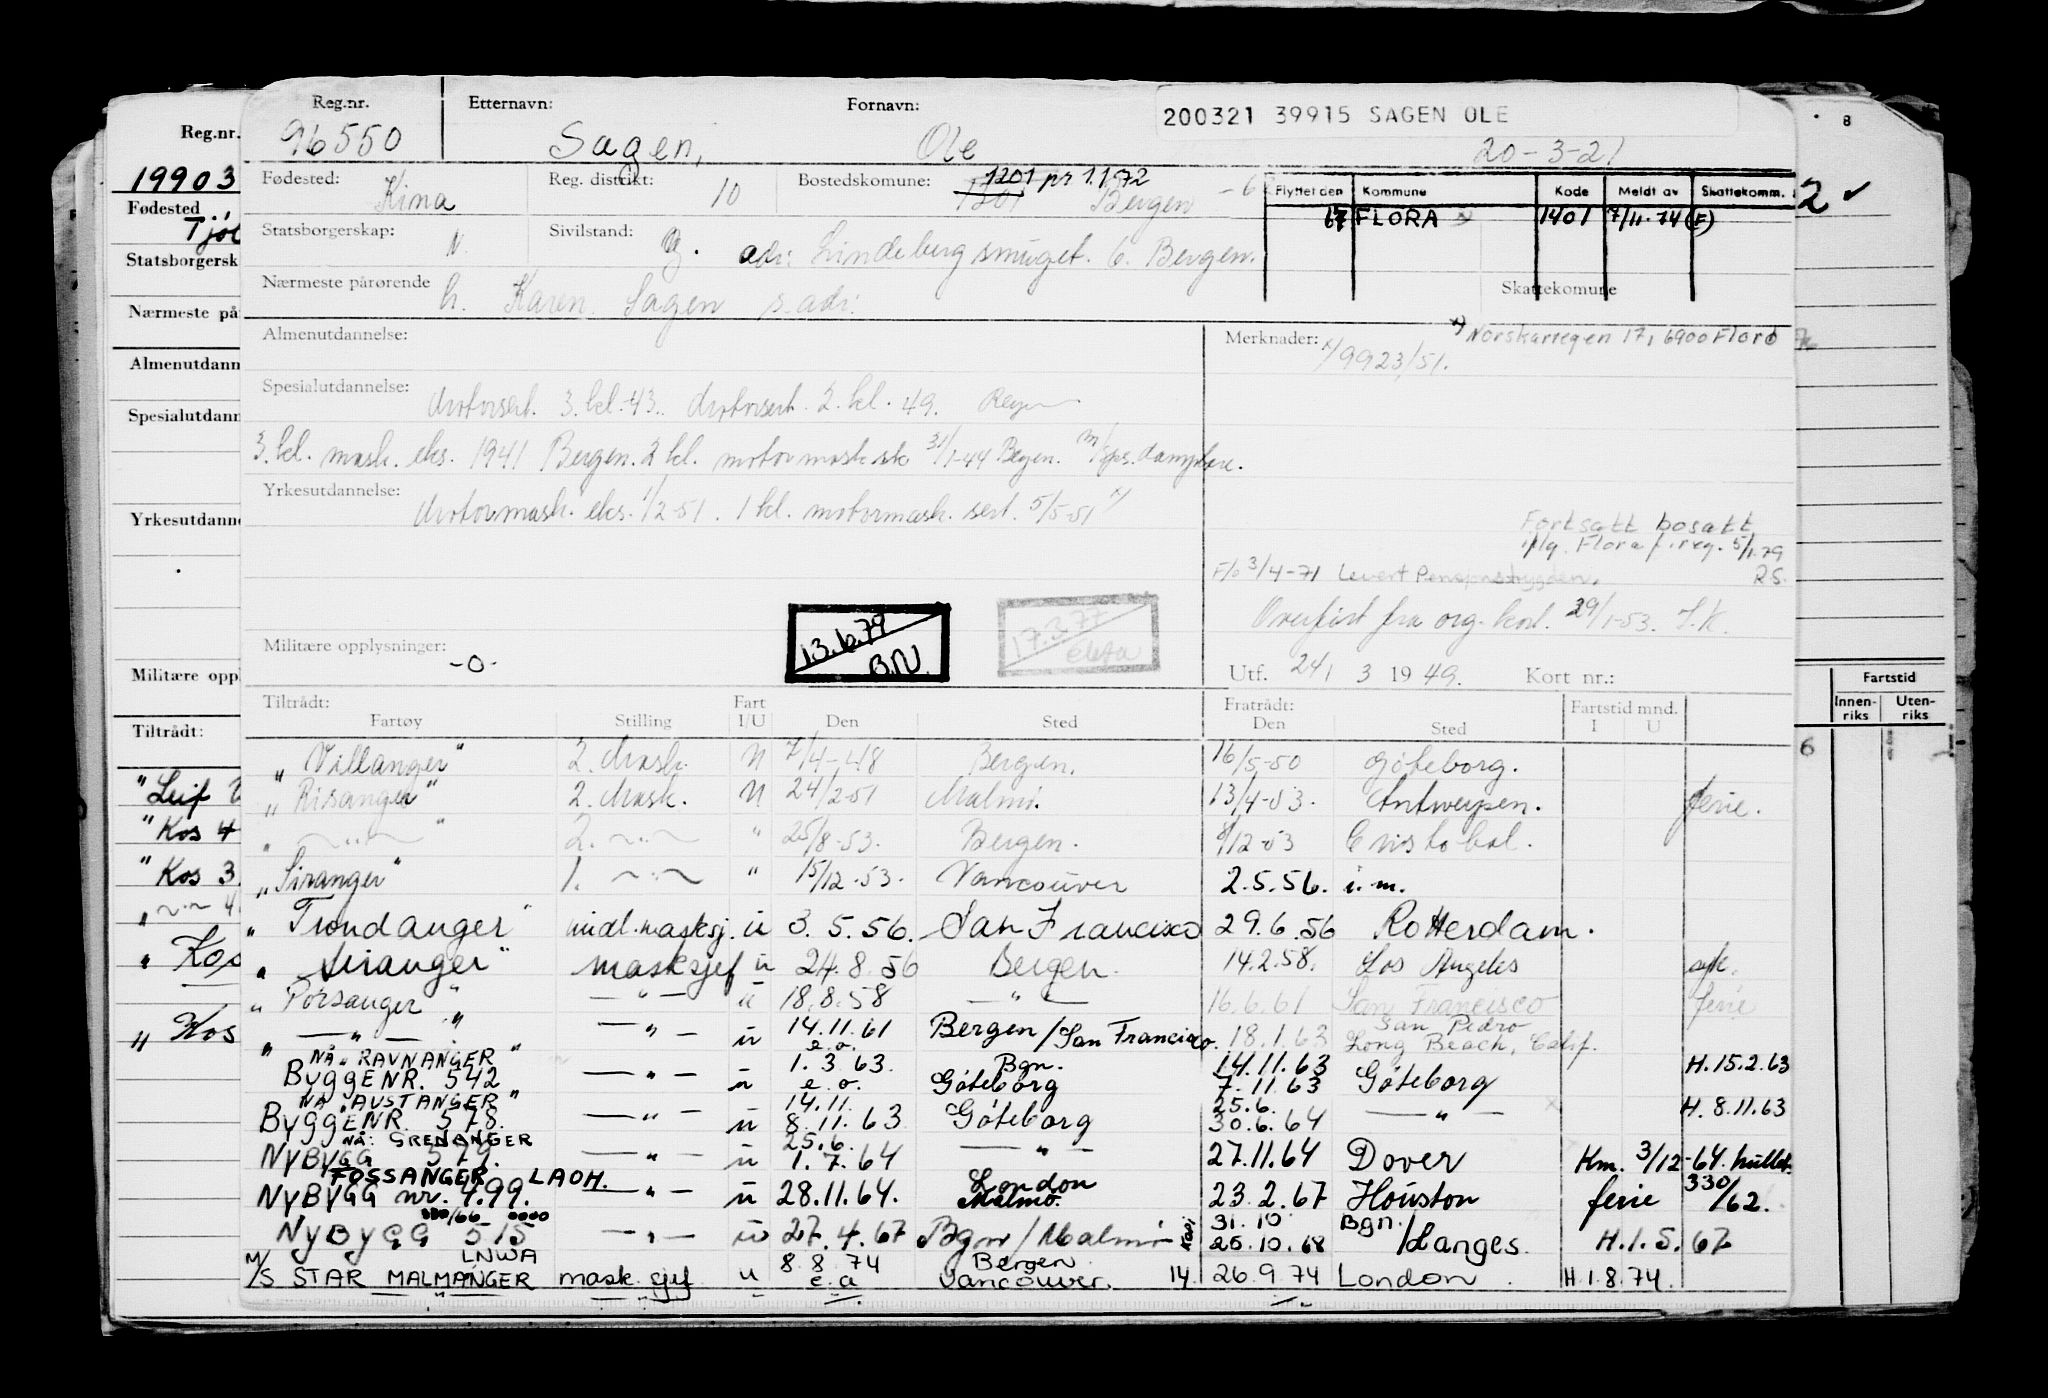 Reg.nr. Etternavn: Fornavn: 200321 39915 SAGEN OLE
96550 Sagen, Ole 20-3-21
Fødested: Kina Reg. distrikt: 10 Bostedskomune: 1201 pr 1.1.72 1301 Bergen
Flyttet den Kommune Kode Meldt av Skattekomm.
67 FLORA 1401 7/11.74 (F)
Statsborgerskap: N. Sivilstand: G. adr: Lindebergsmuget. 6. Bergen.
Nærmeste pårørende h. Karen Sagen s.adr. Skattekomune
Almenutdannelse: Merknader: x/9923/51. x) Norskarvegen 17, 6900 Florø
Spesialutdannelse: Motorsert. 3. kl.-43. Motorsert. 2. kl. 49.
3. kl. mask. eks. 1941 Bergen. 2 kl. motormask sk 31/1-44 Bergen.
Yrkesutdannelse: Motormask. eks. 1/2-51. 1 kl. motormask. sert. 5/5-51 x/
Fortsatt bosatt
iflg. Flora f.reg. 5/1.79
RS.
F/o 3/4-71 Levert Pensjonstrygden.
Overført fra org. kort. 29/1-53. S.K.
13.6.79 B.N.
17.3.77
Militære opplysninger: -0-
Utf. 24/ 3 1949. Kort nr.:
Tiltrådt: Fratrådt: Fartstid mnd.
Fartøy Stilling Fart I/U Den Sted Den Sted I U
"Villanger" 2. Mask. U 7/4-48 Bergen. 16/5-50 Göteborg.
"Risanger" 2. Mask. U 24/2-51 Malmö. 13/4-53. Antwerpen. ferie.
" —"— " 2. —"— " 25/8-53. Bergen. 8/12-53 Cristobal.
"Siranger" 1. —"— " 15/12-53. Vancouver 2.5.56. i.m.
"Trondanger" midl. masksj. u 3.5.56. San Francisco 29.6.56 Rotterdam.
"Siranger" masksjef u 24.8.56 Bergen. 14.2.58. Los Angeles syk.
"Porsanger" —"— u 18.8.58 —"— 16.6.61 San Francisco ferie
" —"— " —"— u 14.11.61 e.o. Bergen/San Francisco. 18.1.63 San Pedro Long Beach, Calif.
NÅ "RAVNANGER"
ByggENR. 542 —"— u 1.3.63. e.o. Bgn. Göteborg 14.11.63 7.11.63 Göteborg H.15.2.63
NÅ "AUSTANGER"
ByggENR. 578. —"— u 14.11. 8.11.63 Göteborg 25.6. 30.6.64 —"— H.8.11.63
NÅ: GRENANGER
NyBygg 579. —"— u 25.6. 1.7.64 —"— 27.11.64 Dover Km. 3/12-64. hullet.
FOSSANGER LAOH.
NyBYGG nr. 499. —"— u 28.11.64. London Malmö. 23.2.67 Houston ferie 330/62.
NyByGG 515 —"— u 27.4.67 Bgn/Malmö 31.10 25.10.68 Bgn./Langes. H.1.5.67
LNWA
M/S STAR MALMANGER mask.sjef u 8.8.74 e.o Bergen Vancouver. 14. 26.9.74 London. H.1.8.74.
Reg.nr.
19903
Fødested
Statsborgersk
Nærmeste på
Almenutdann
Spesialutdann
Yrkesutdanne
Militære oppl
Tiltrådt:
"Leif
"Kos 4
"Kos 3
" Kos
" Kos
8
2 ✓
Fartstid
Innen-riks Uten-riks
6